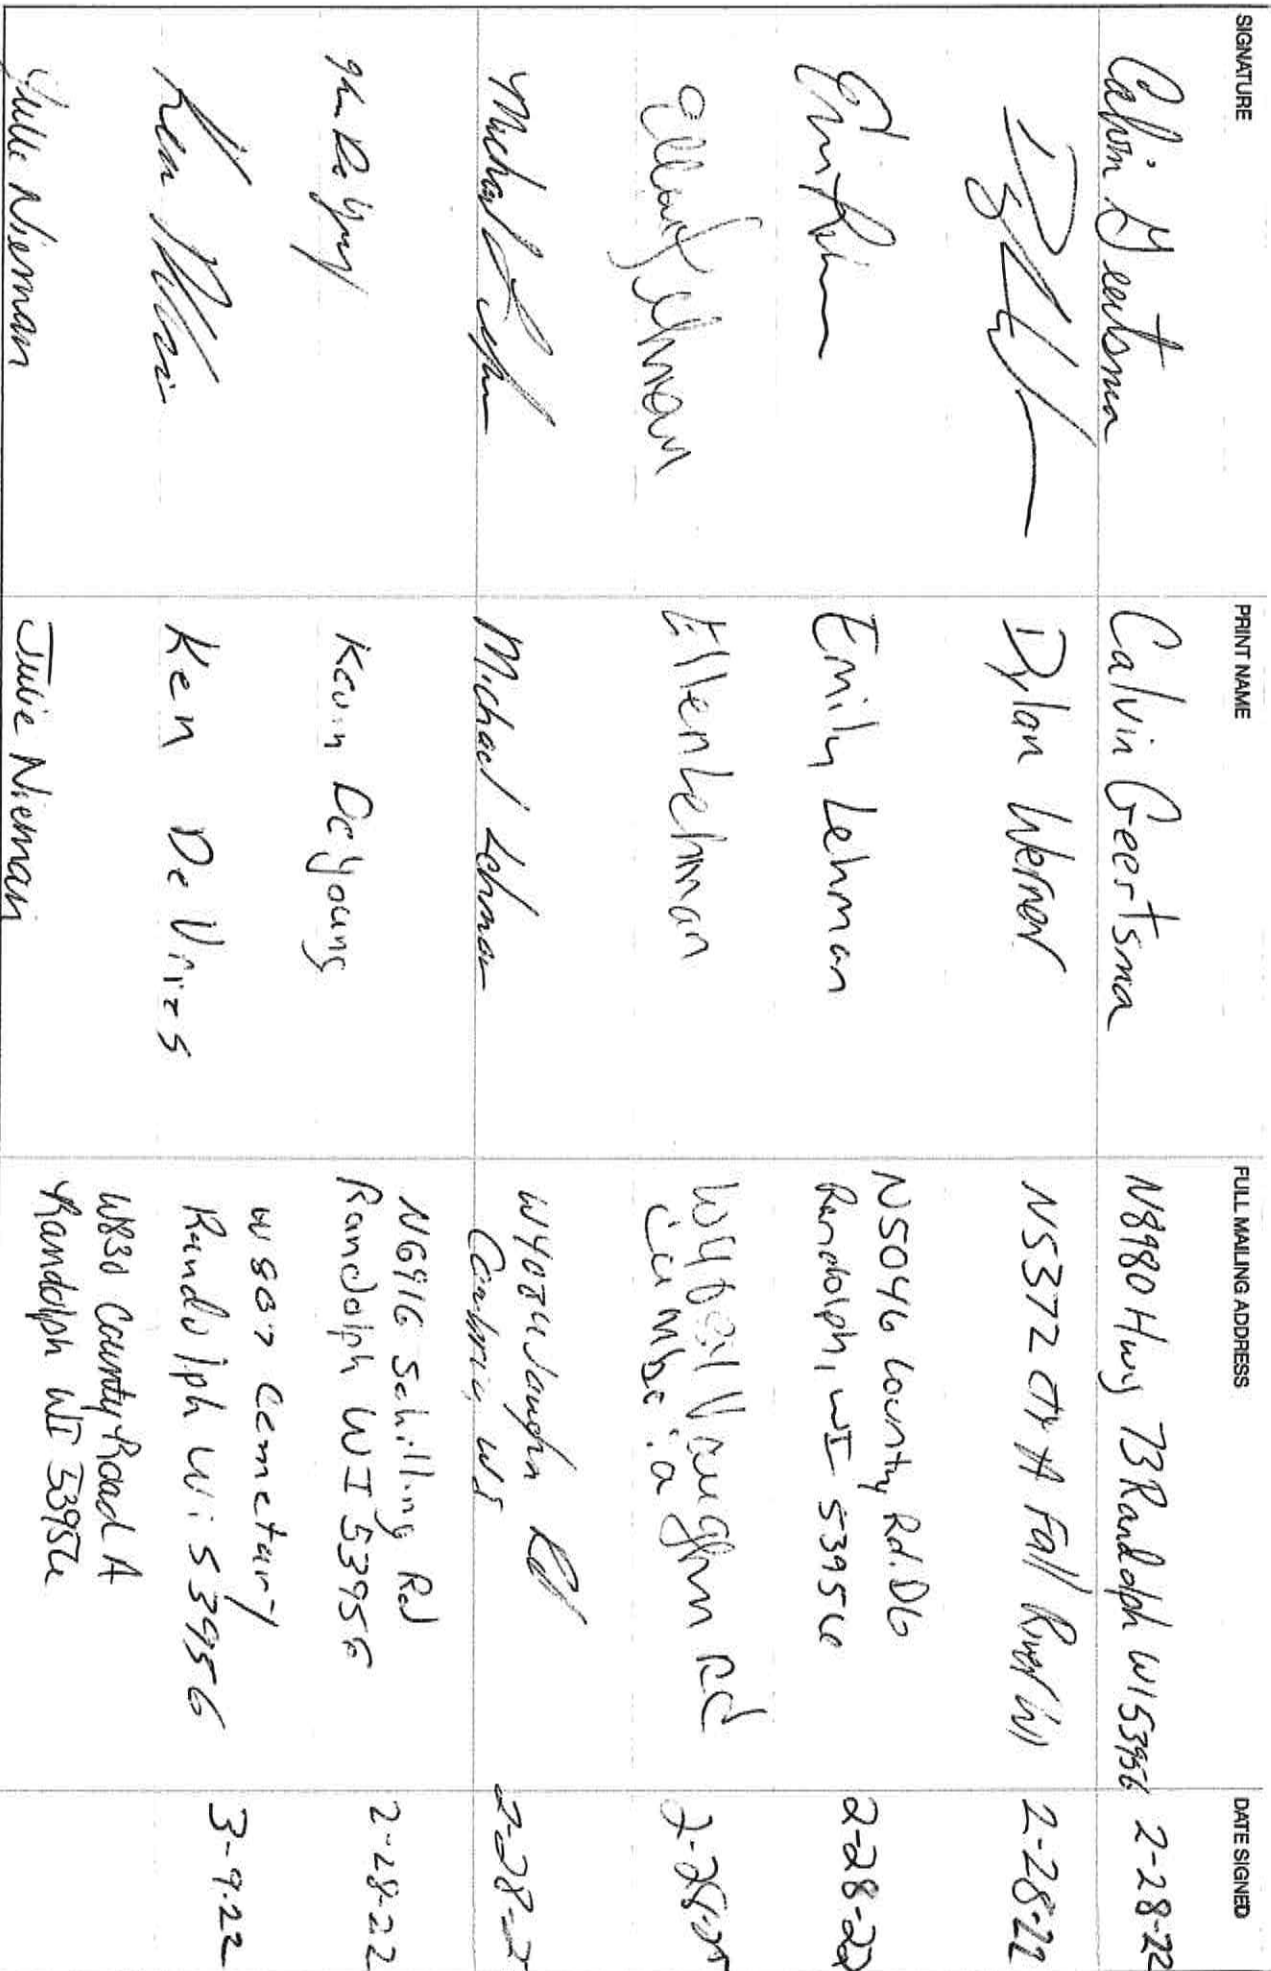 SIGNATURE PRINT NAME FULL MAILING ADDRESS DATE SIGNED
Calvin Geertsma Calvin Geertsma N8980 Hwy 73 Randolph WI 53956 2-28-22
Dylan Werner N5372 CTY A Fall River WI 2-28-22
Emily Lehman N5046 County Rd. DG
Randolph, WI 53956 2-28-22
Ellen Lehman Ellen Lehman Vaughn Rd
Cambria
Michael Lehman Vaughn Rd
Cambria, WI 2-28-2
Kevin DeYoung N6916 Schilling Rd
Randolph WI 53956 2-28-22
Ken De Vries W807 Cemetary
Randolph Wi 53956 3-9-22
Julie Nieman Julie Nieman W830 County Road A
Randolph WI 53956